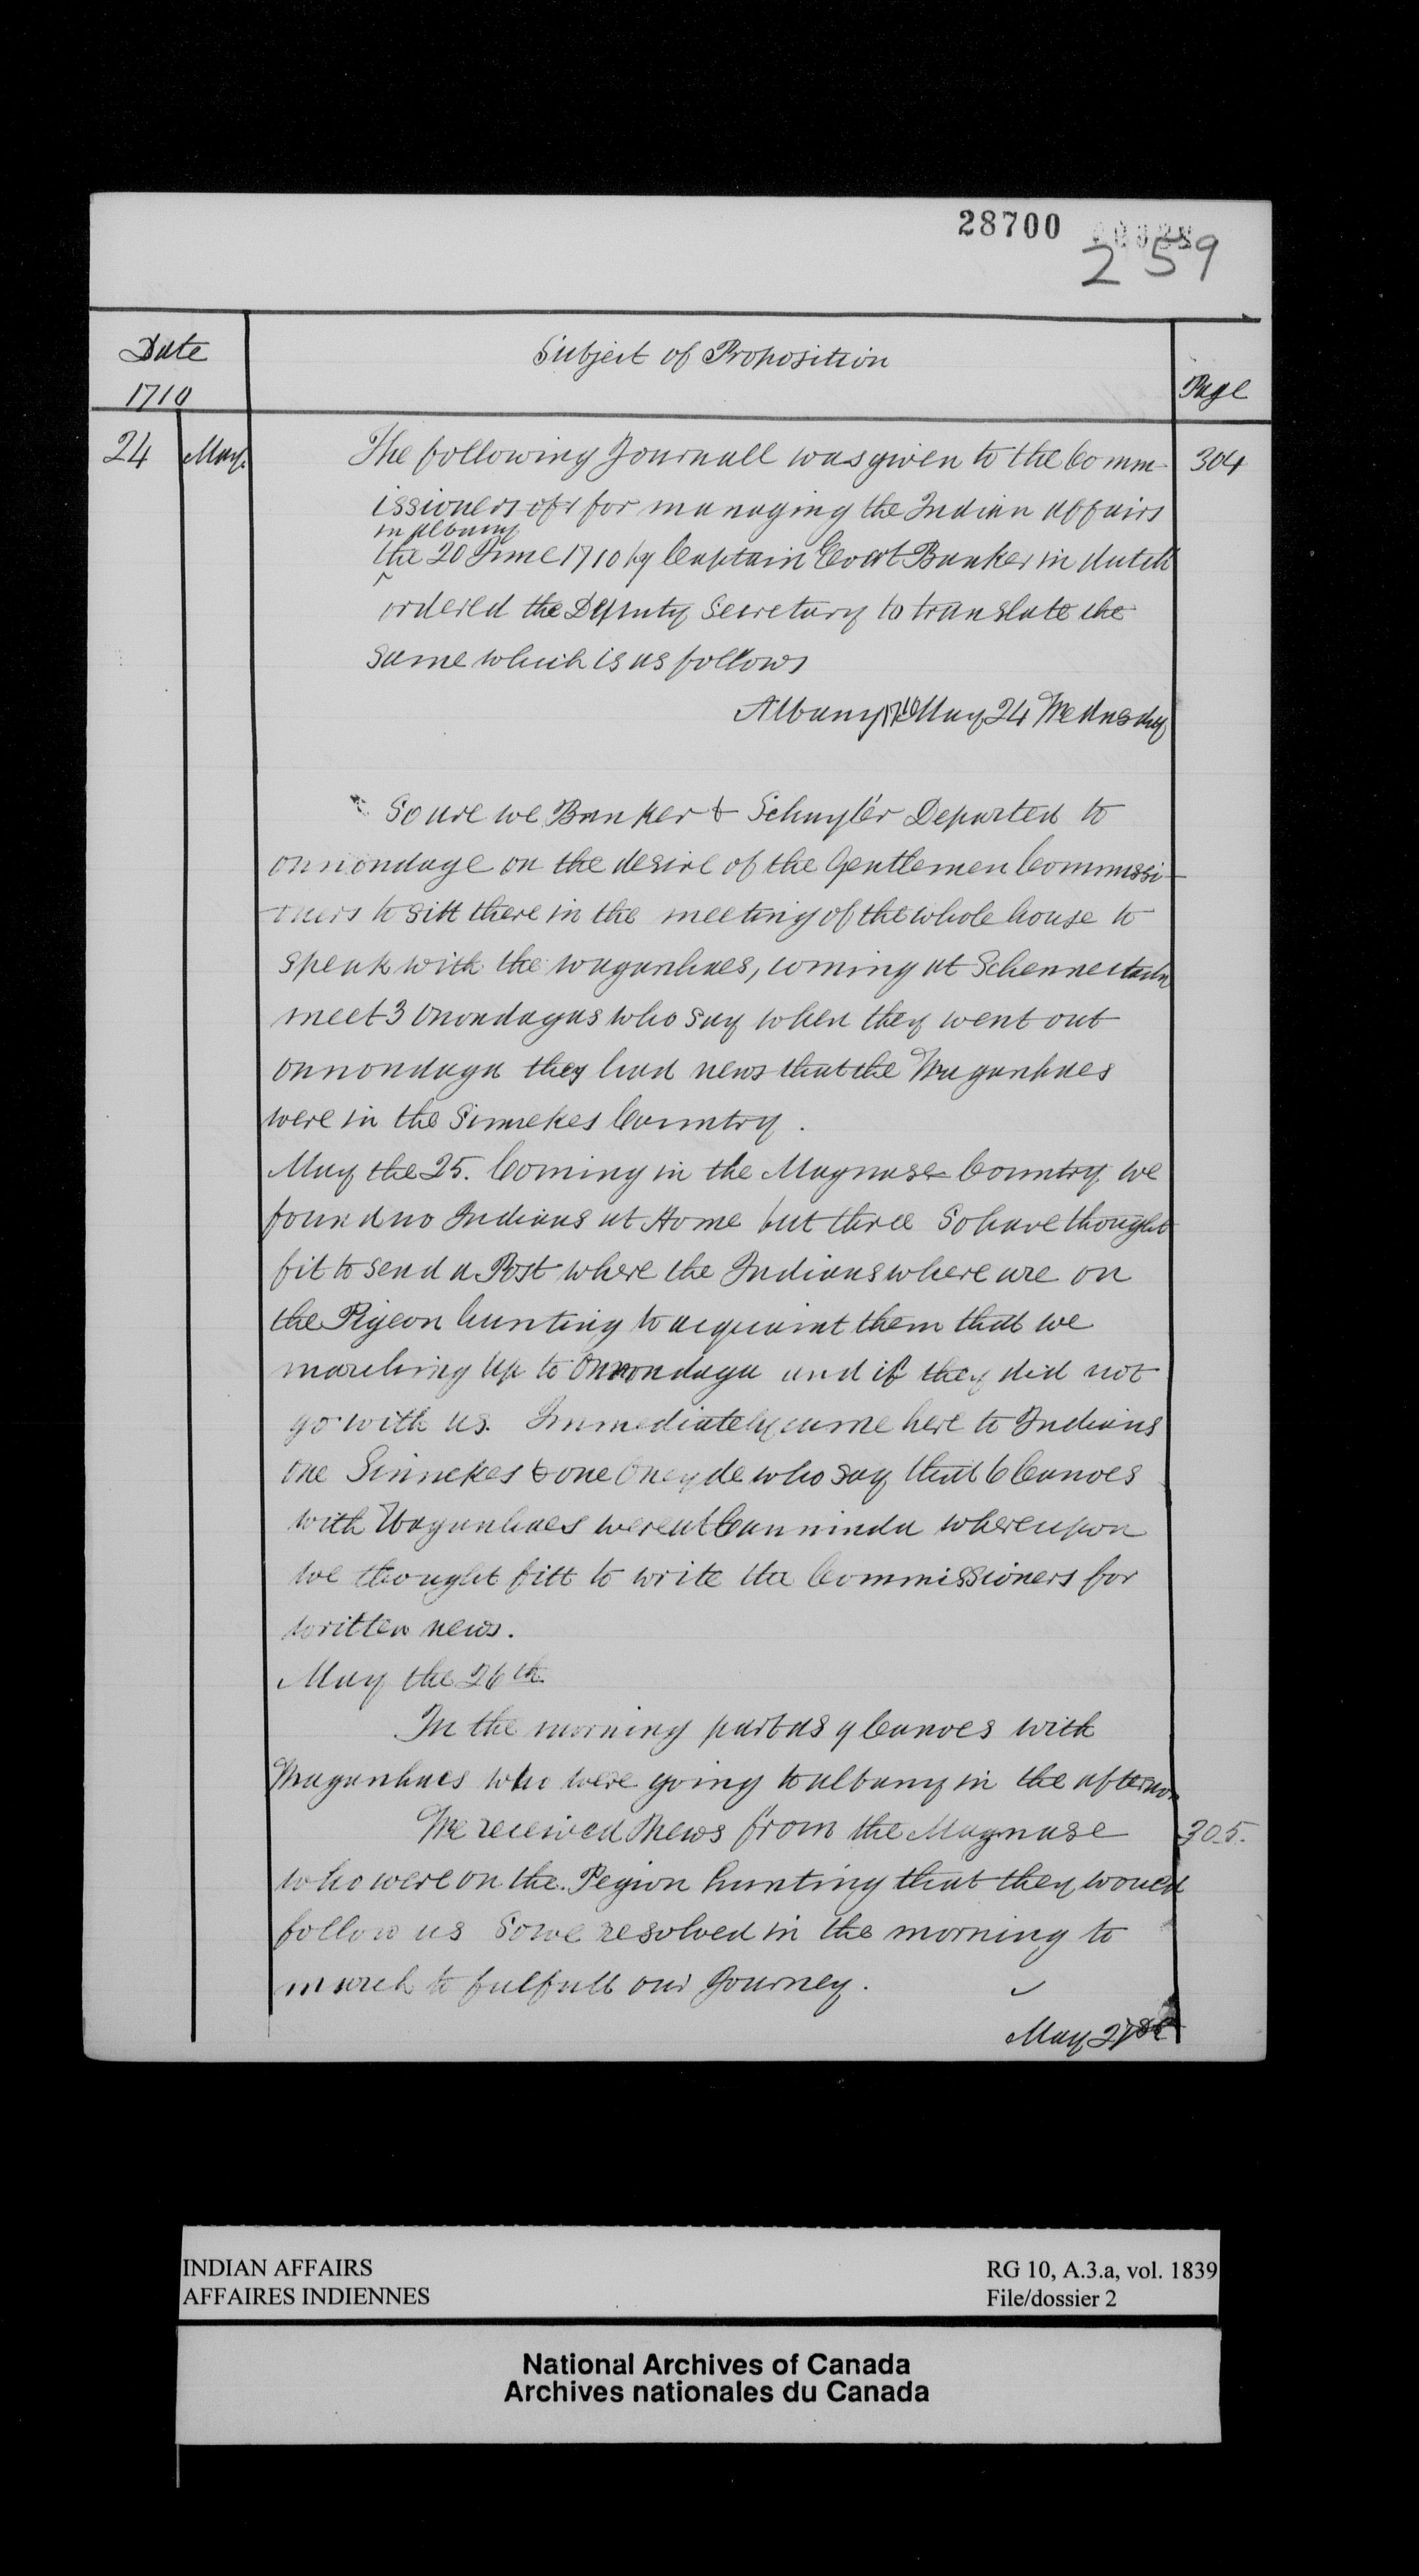 28700
259
Date
Subject of Proposition
1710
Page
24 May.
The following Journall was given to the Comm- 304
issioners of for managing the Indian affairs
in albany
the 20 June 1710 by Captain Evert Banker in dutch
ordered the Deputy Secretary to translate the
same which is as follows
Albany 1710 May 24 Wednesday
So are we Banker & Schuyler Departed to
onnondage on the desire of the Gentlemen Commissi-
oners to sitt there in the meeting of the whole house to
speak with the waganhaes, coming at Schennectady
meet 3 onondagas who say when they went out
onnondaga they had news that the Waganhaes
were in the Sinnekes Country.
May the 25. Coming in the Maquase Country we
found no Indians at Home but three So have thought
fit to send a Post where the Indians where are on
the Pigeon hunting to acquaint them that we
marching up to Onnondaga and if they did not
go with us. Immediately came here to Indians
one Sinnekes & one Oneyde who say that 6 Canoes
with Waganhaes were at Canninda whereupon
we thought fitt to write the Commissioners for
written news.
May the 26th
In the morning past us 9 Canoes with
Waganhaes who were going to albany in the afternoon
We received News from the Maquase 305.
who were on the Pegion hunting that they would
follow us So we resolved in the morning to
march to fulfull our Journey.
May 27
INDIAN AFFAIRS
AFFAIRES INDIENNES
RG 10, A.3.a, vol. 1839
File/dossier 2
National Archives of Canada
Archives nationales du Canada